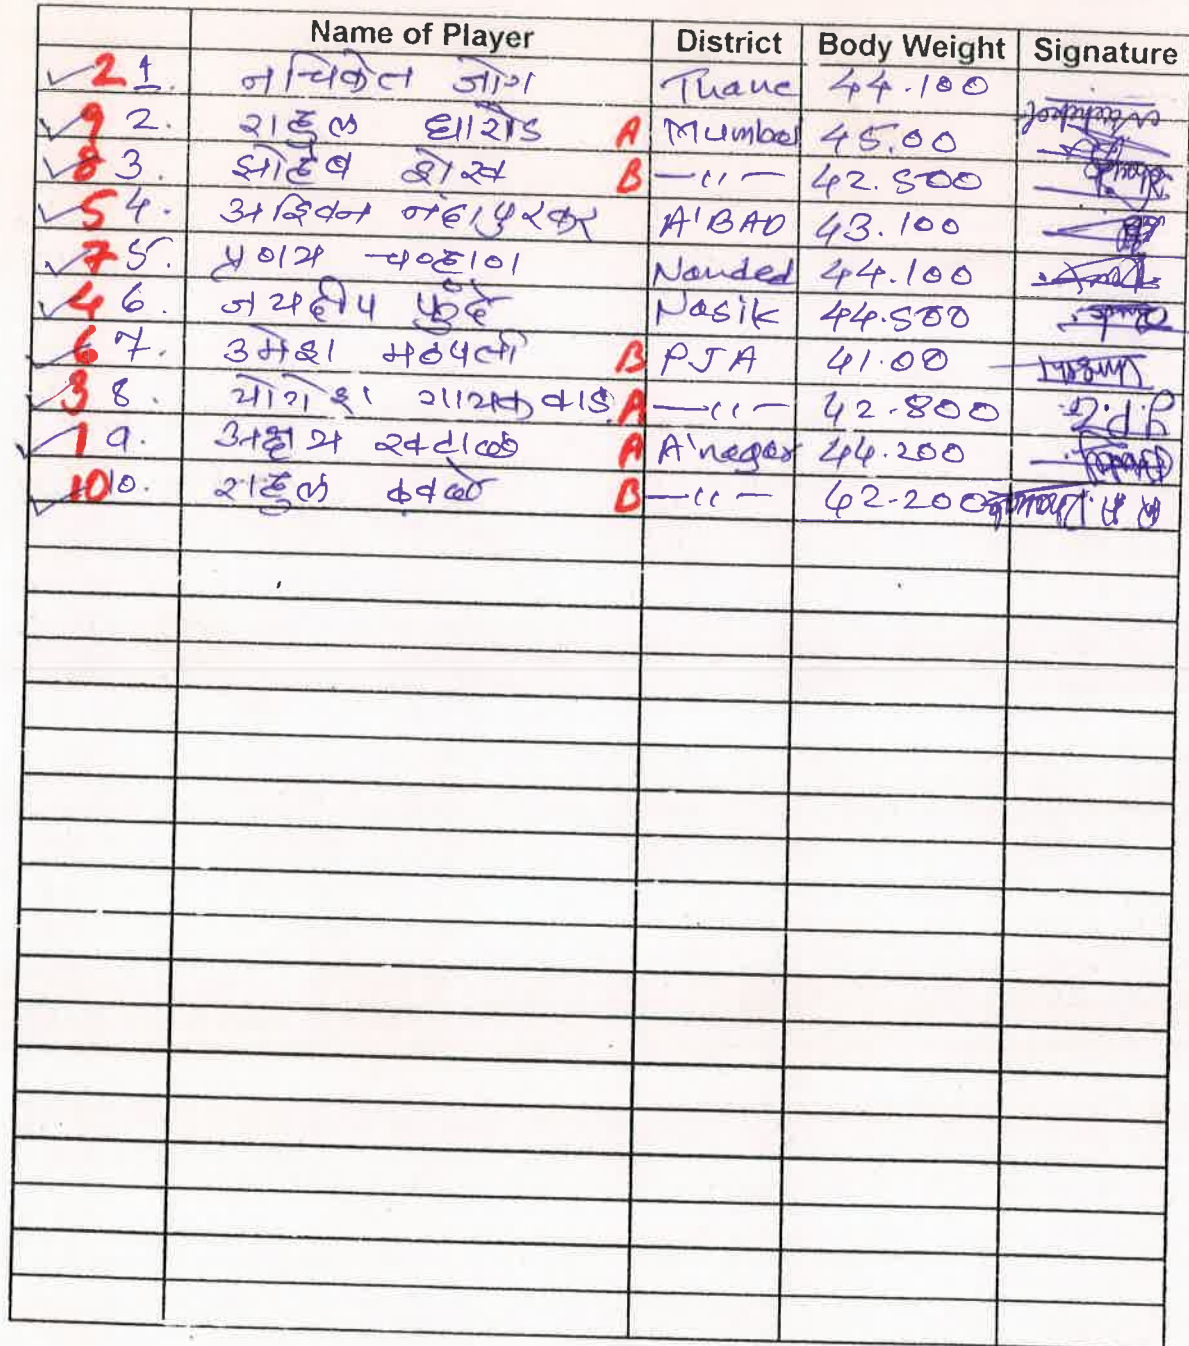 Name of Player District Body Weight Signature
2 1. नचिकेत जोग Thane 44.100
9 2. राहुल A Mumbai 45.00
8 3. शेख B —〃— 42.500
5 4. अश्विन नंदापुरकर A'BAD 43.100
7 5. प्रणय चव्हाण Nanded 44.100
4 6. जयदीप फुंदे Nasik 44.500
6 7. उमेश मठपती B PJA 41.00 Umesh
3 8. योगेश गायकवाड A —〃— 42.800
1 9. अक्षय A A'nagar 44.200
10 10. राहुल ढवळे B —〃— 42.200